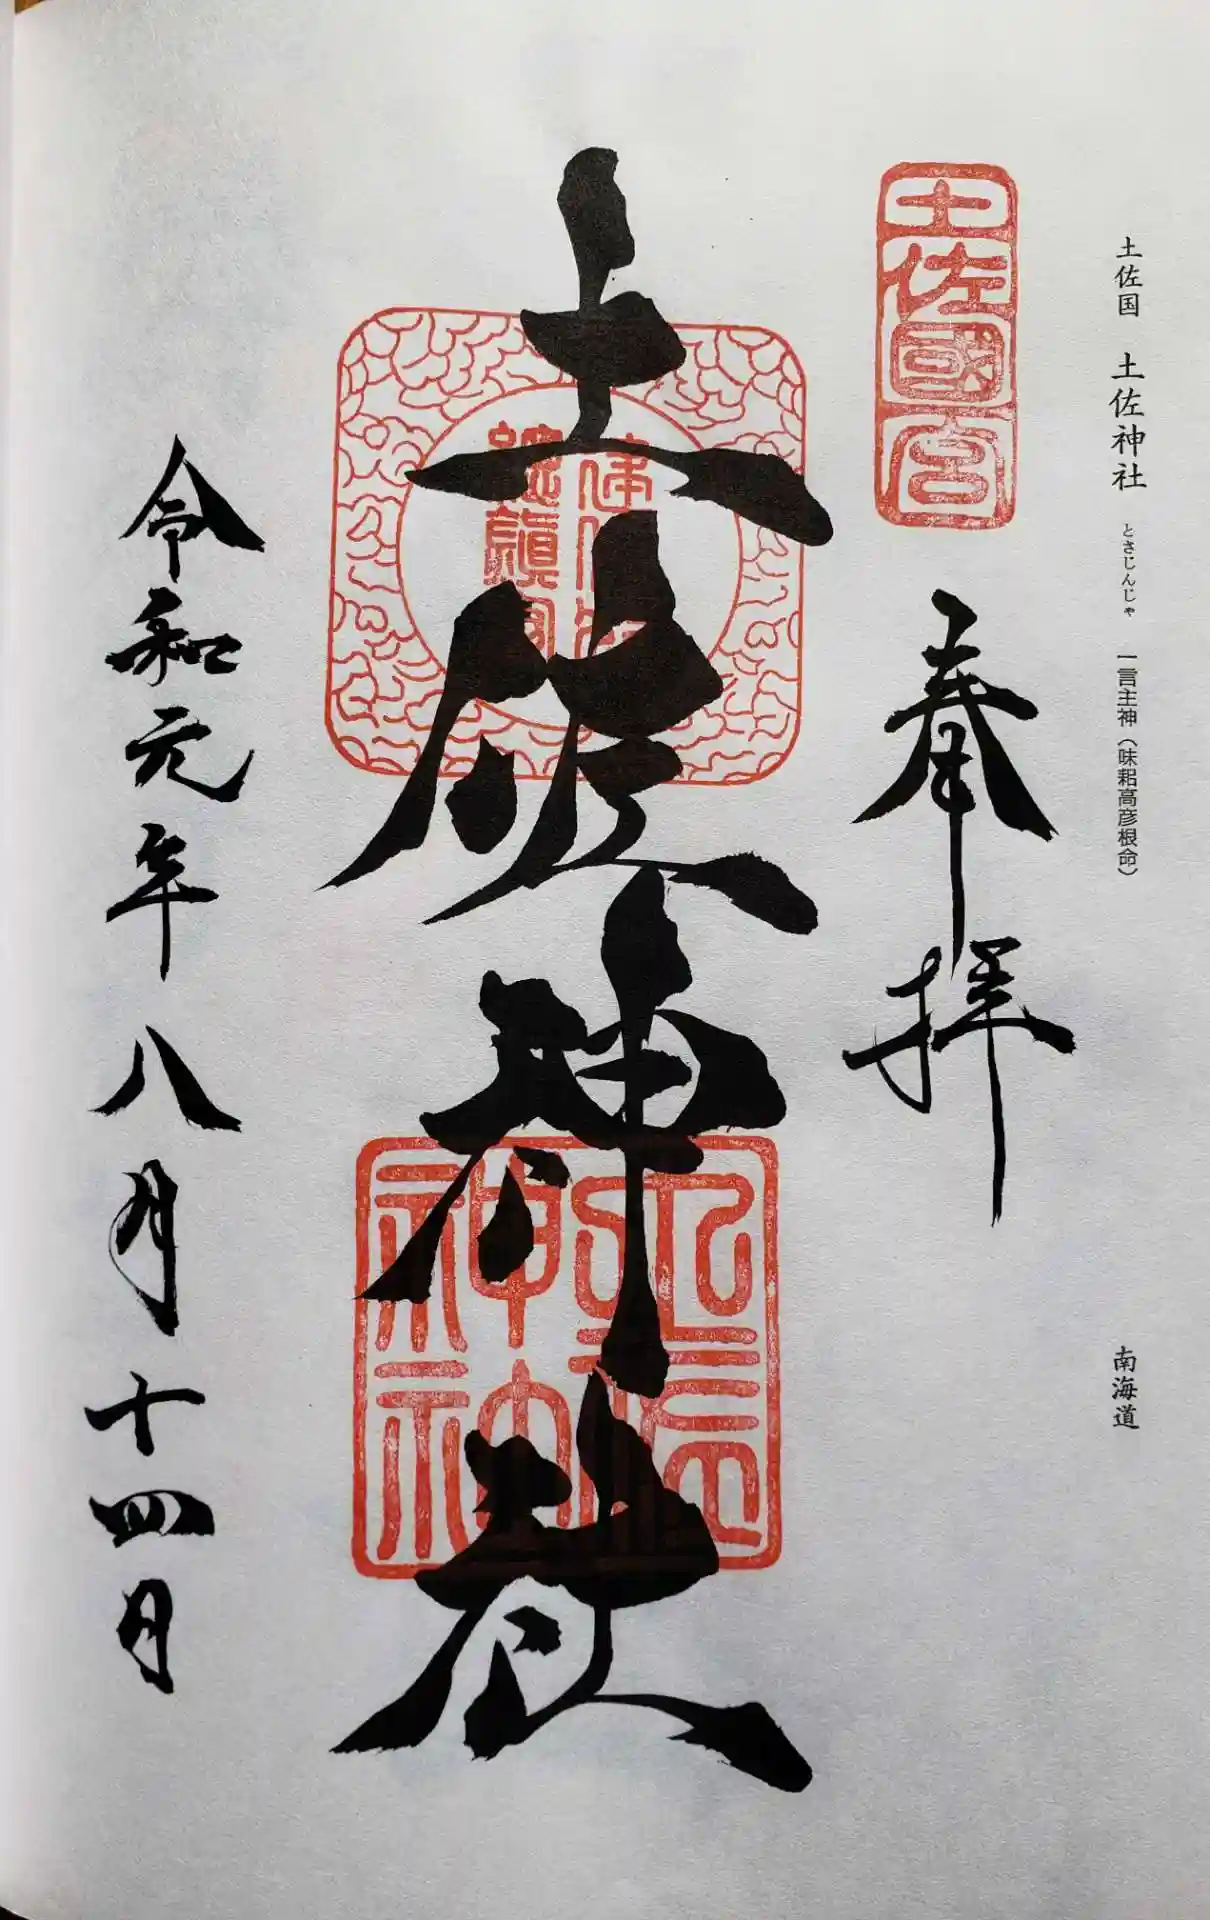 土佐国 土佐神社 とさじんじゃ 一言主神（味耜高彦根命）
南海道
土佐國宮
奉拝
土佐神社
令和元年八月十四日